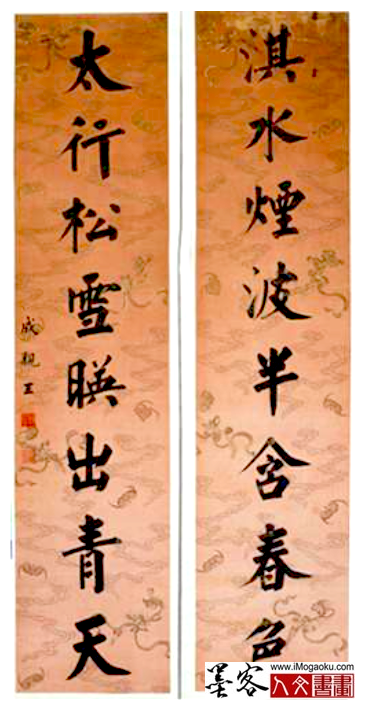 淇水煙波半含春色
太行松雪暎出青天
成親王
墨客
www.iMogaoku.com
人文書畫